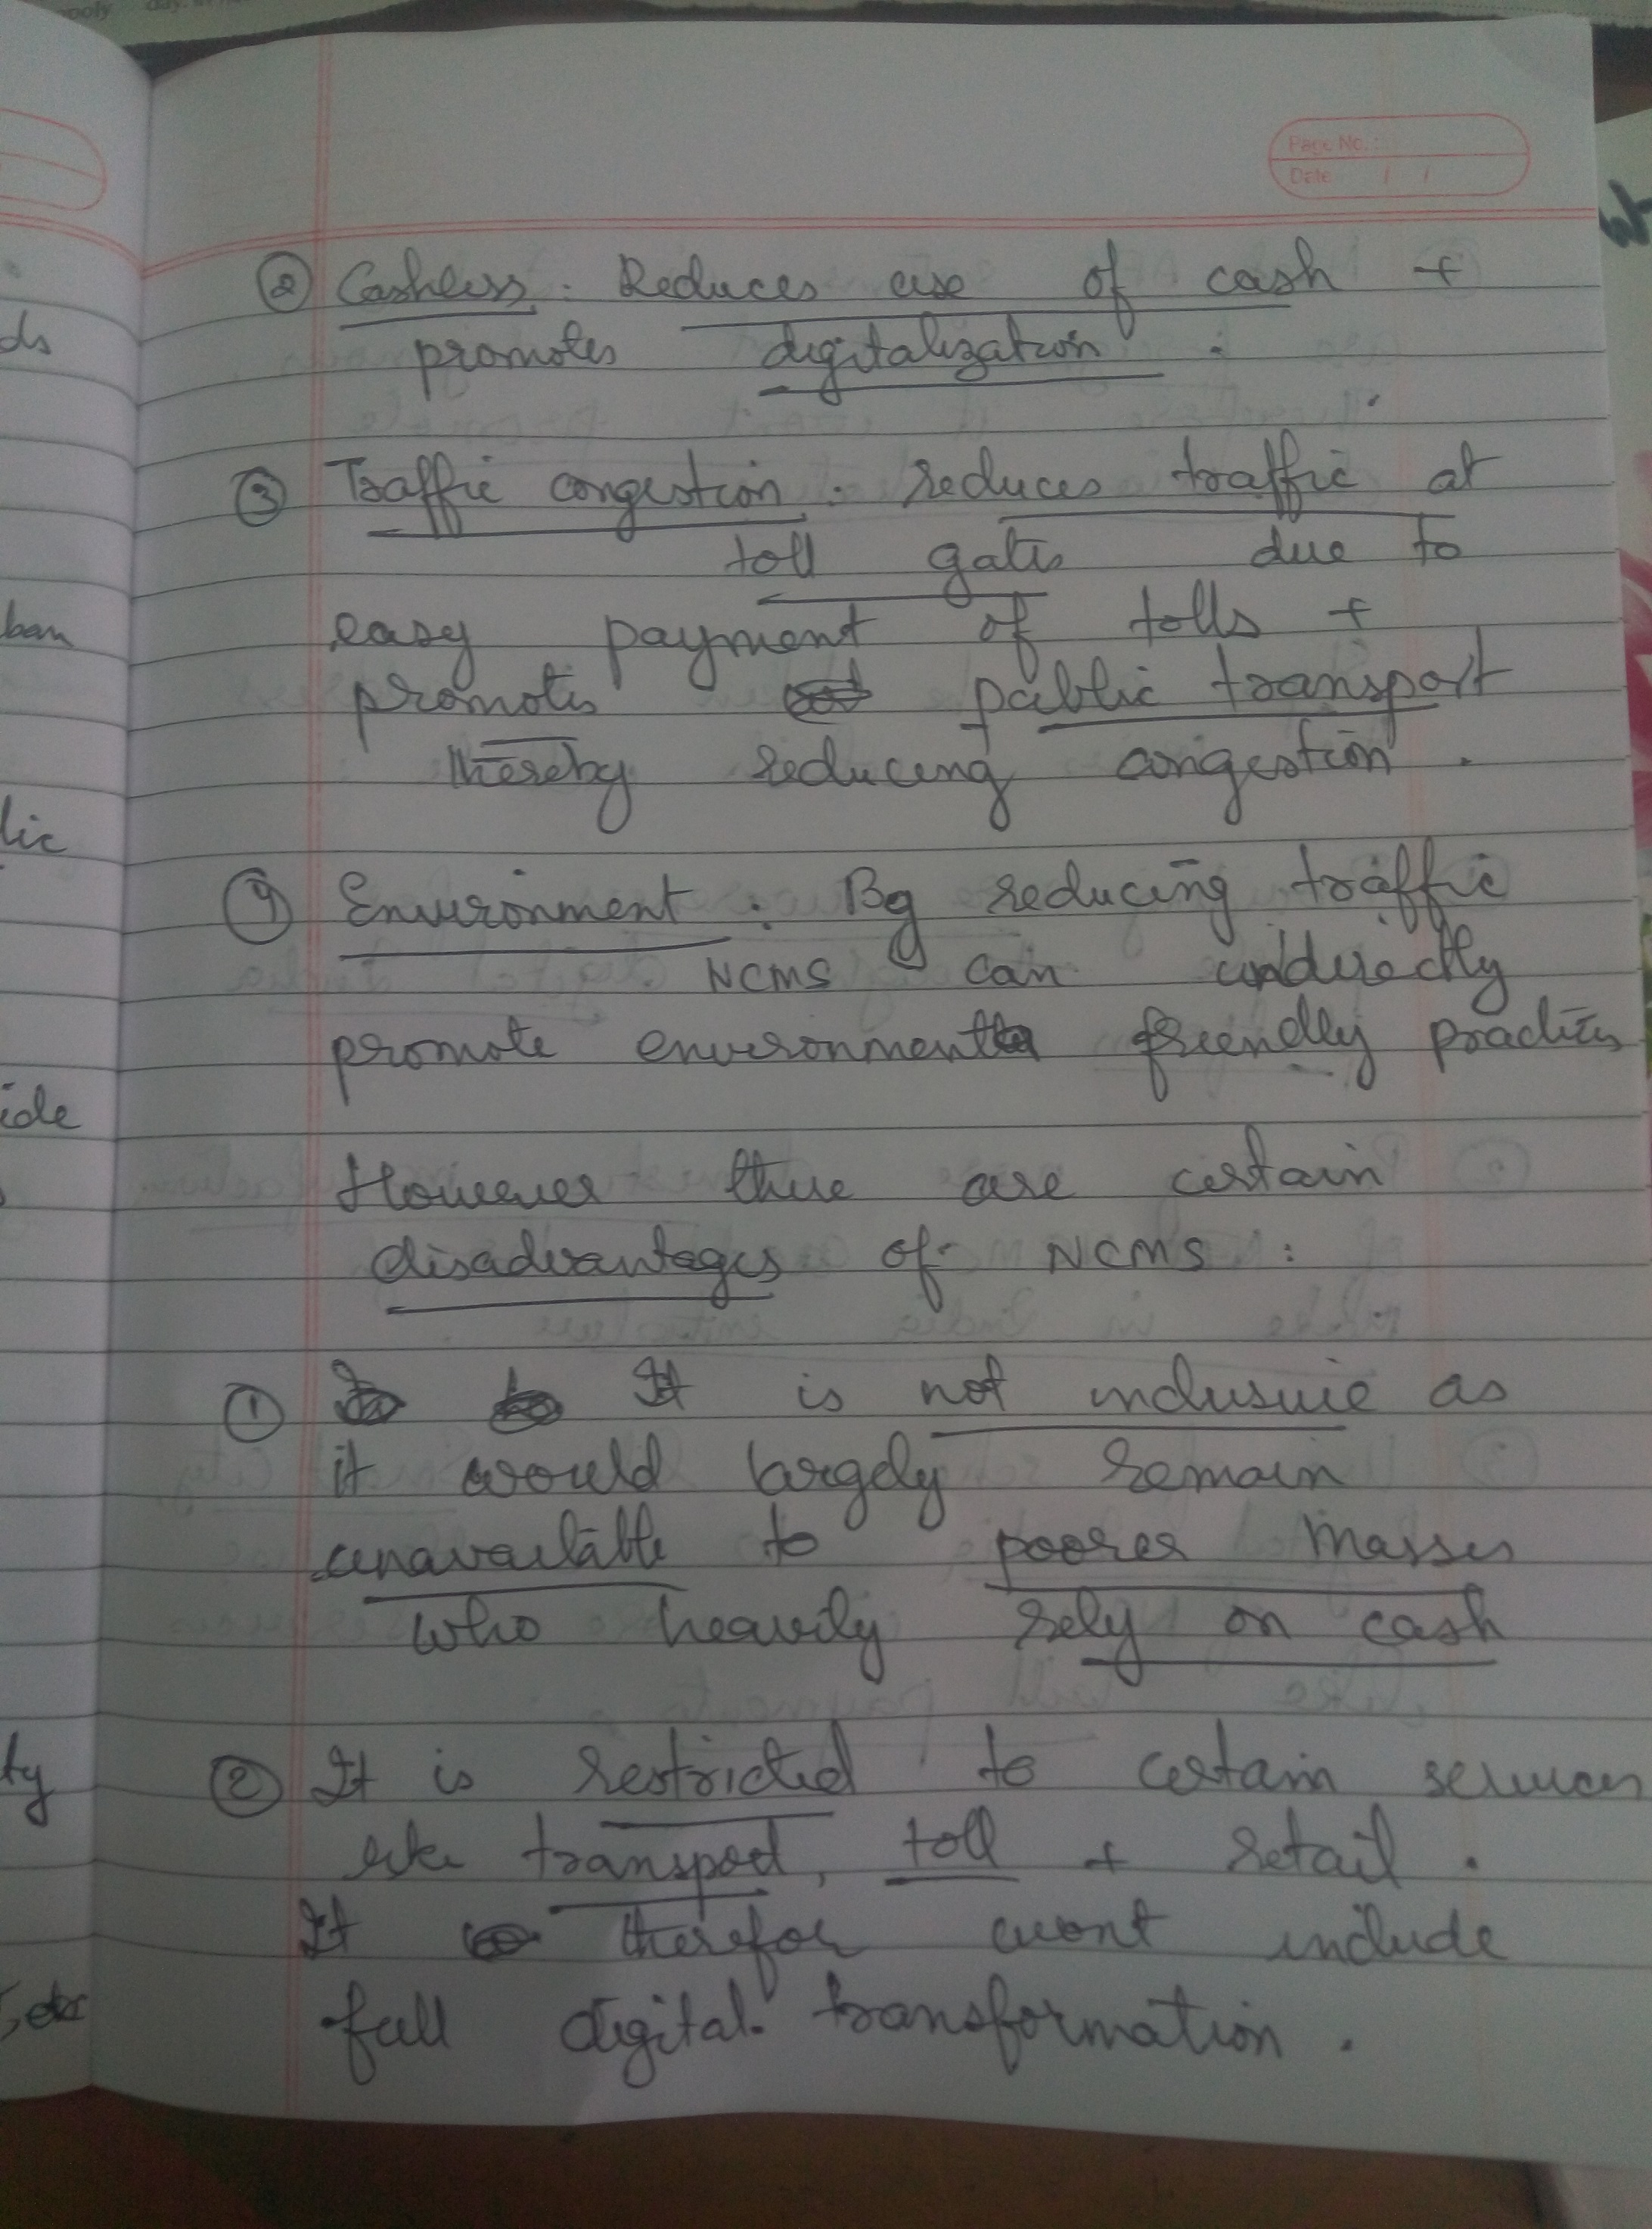 Page No.:
Date / /
② Cashless: Reduces use of cash +
promotes digitalization.
③ Traffic congestion: reduces traffic at
toll gates due to
easy payment of tolls +
promotes public transport
thereby reducing congestion.
④ Environment: By reducing traffic
NCMS can indirectly
promote environment friendly practices
However there are certain
disadvantages of NCMS:
① It is not inclusive as
it would largely remain
unavailable to poorer masses
who heavily rely on cash
② It is restricted to certain services
like transport, toll + retail.
It therefor wont include
full digital transformation.
ds
ban
lic
ide
ty
, etc